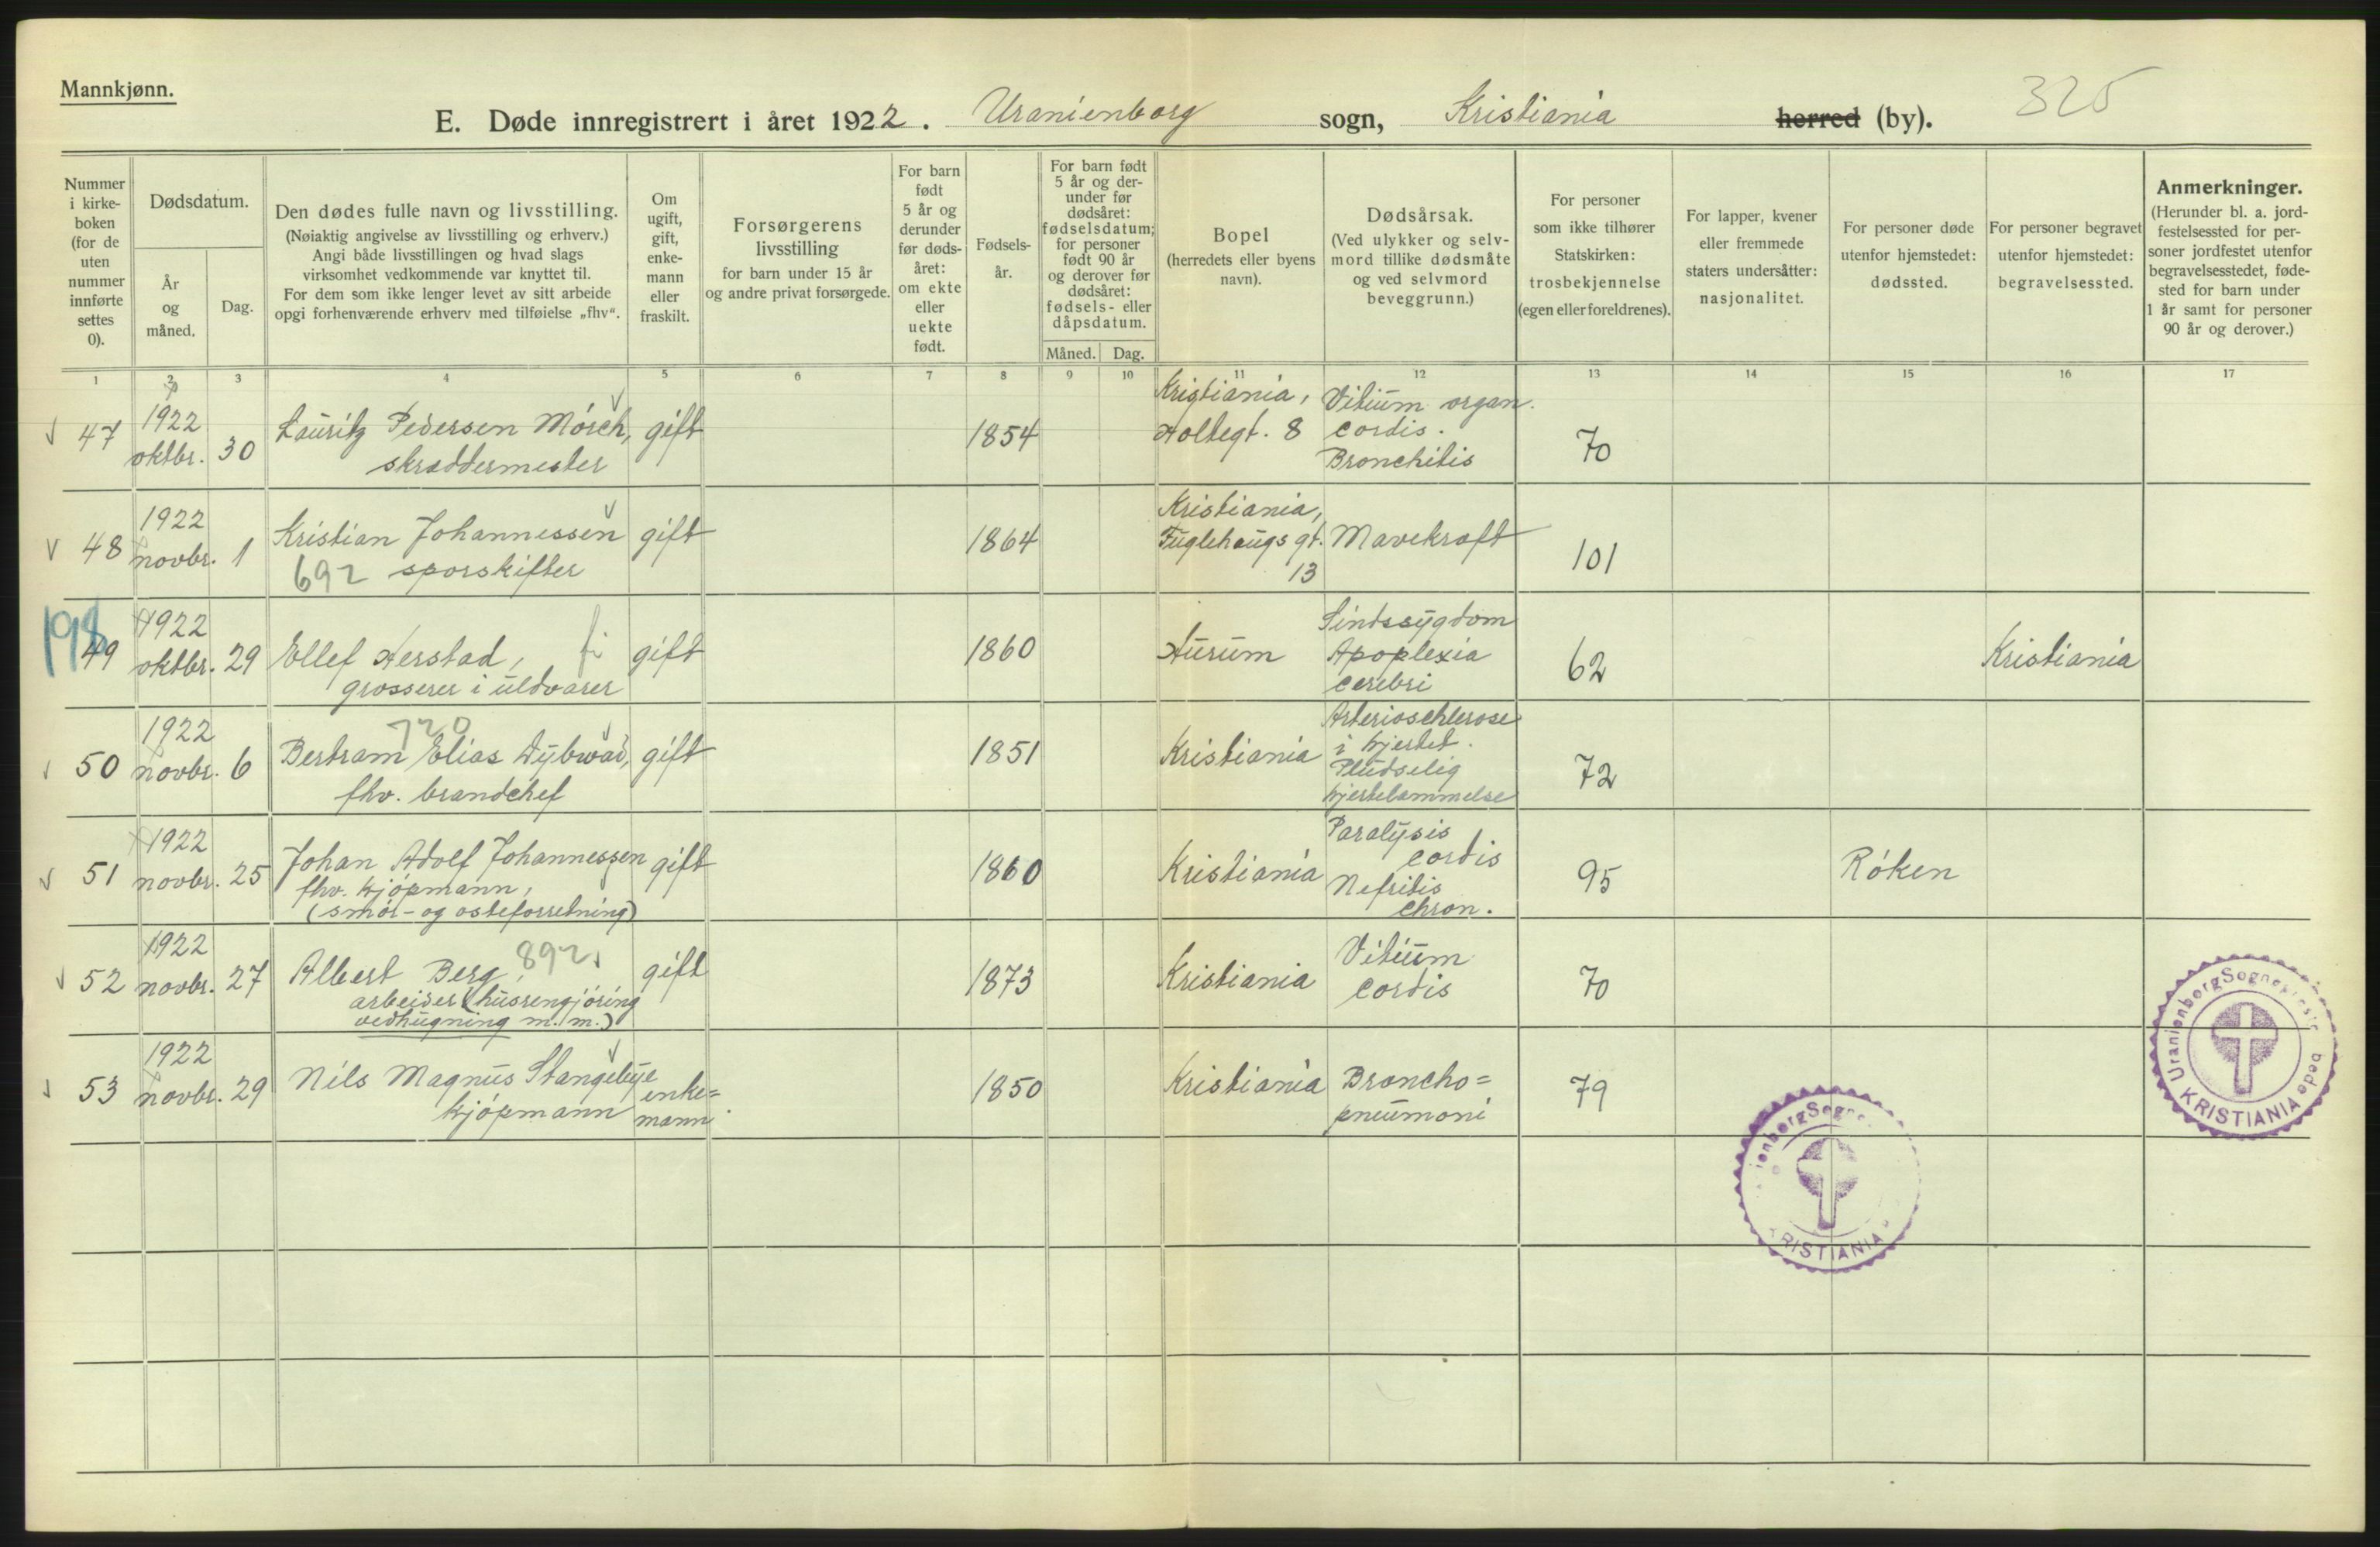 Mannkjønn.
E. Døde innregistrert i året 1922. Uranienborg sogn, Kristiania herred (by). 325
Nummer i kirke-boken (for de uten nummer innførte settes 0).
Dødsdatum.
År og måned.
Dag.
Den dødes fulle navn og livsstilling.
(Nøiaktig angivelse av livsstilling og erhverv.)
Angi både livsstillingen og hvad slags
virksomhet vedkommende var knyttet til.
For dem som ikke lenger levet av sitt arbeide
opgi forhenværende erhverv med tilføielse „fhv“.
Om ugift, gift, enke-mann eller fraskilt.
Forsørgerens
livsstilling
for barn under 15 år
og andre privat forsørgede.
For barn født 5 år og derunder før døds-året: om ekte eller uekte født.
Fødsels-år.
For barn født 5 år og der-under før dødsåret: fødselsdatum; for personer født 90 år og derover før dødsåret: fødsels- eller dåpsdatum.
Måned. Dag.
Bopel
(herredets eller byens
navn).
Dødsårsak.
(Ved ulykker og selv-
mord tillike dødsmåte
og ved selvmord
beveggrunn.)
For personer
som ikke tilhører
Statskirken:
trosbekjennelse
(egen eller foreldrenes).
For lapper, kvener
eller fremmede
staters undersåtter:
nasjonalitet.
For personer døde
utenfor hjemstedet:
dødssted.
For personer begravet
utenfor hjemstedet:
begravelsessted.
Anmerkninger.
(Herunder bl. a. jord-
festelsessted for per-
soner jordfestet utenfor
begravelsesstedet, føde-
sted for barn under
1 år samt for personer
90 år og derover.)
1 2 3 4 5 6 7 8 9 10 11 12 13 14 15 16 17
47 1922 oktbr. 30 Lauritz Pedersen Mörch, skræddermester gift 1854 Kristiania, Holtegt. 8 Vitium organ. cordis. Bronchitis 70
48 1922 novbr. 1 Kristian Johannessen 692 sporskifter gift 1864 Kristiania, Fuglehaugs gt. 13 Mavekræft 101
198
49 1922 oktbr. 29 Ellef Herstad, fi grosserer i uldvarer gift 1860 Hurum Sindssygdom Apoplexia cerebri 62 Kristiania
50 1922 novbr. 6 720 Bertram Elias Dybwad, fhv. brandchef gift 1851 Kristiania Arterioschlerose i hjertet. Pludselig hjertelammelse 72
51 1922 novbr. 25 Johan Adolf Johannessen fhv. kjöpmann, (smör- og osteforretning) gift 1860 Kristiania Paralysis cordis Nefritis chron. 95 Röken
52 1922 novbr. 27 Albert Berg, 892 arbeider (husrengjöring vedhugning m. m.) gift 1873 Kristiania Vitium cordis 70
53 1922 novbr. 29 Nils Magnus Stangebye kjöpmann enke=mann. 1850 Kristiania Broncho=pneumoni 79
Uranienborg Sogneprestembede
KRISTIANIA